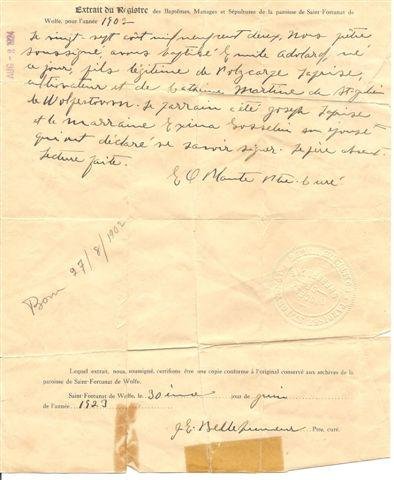 Extrait du Registre des Baptêmes, Mariages et Sépultures de la paroisse de Saint-Fortunat de
Wolfe, pour l'année 1902
AUG - 8 1924
Le vingt sept août mil neuf cent deux, Nous prêtre
soussigné avons baptisé Emile Adolard, né
ce jour, fils légitime de Polycarpe
cultivateur et de Martine de St Julien
de Wolfestown. Le parrain a été Joseph
et la marraine Exina Gosselin son épouse
qui ont déclaré ne savoir signer. Le père absent.
Lecture faite.
E O Ptre. Curé
Born 27/8/1902
Lequel extrait, nous, soussigné, certifions être une copie conforme à l'original conservé aux archives de la
paroisse de Saint-Fortunat de Wolfe.
Saint-Fortunat de Wolfe, le 30 ième jour de juin
de l'année 1923
J. E. Bellehumeur Ptre, curé.